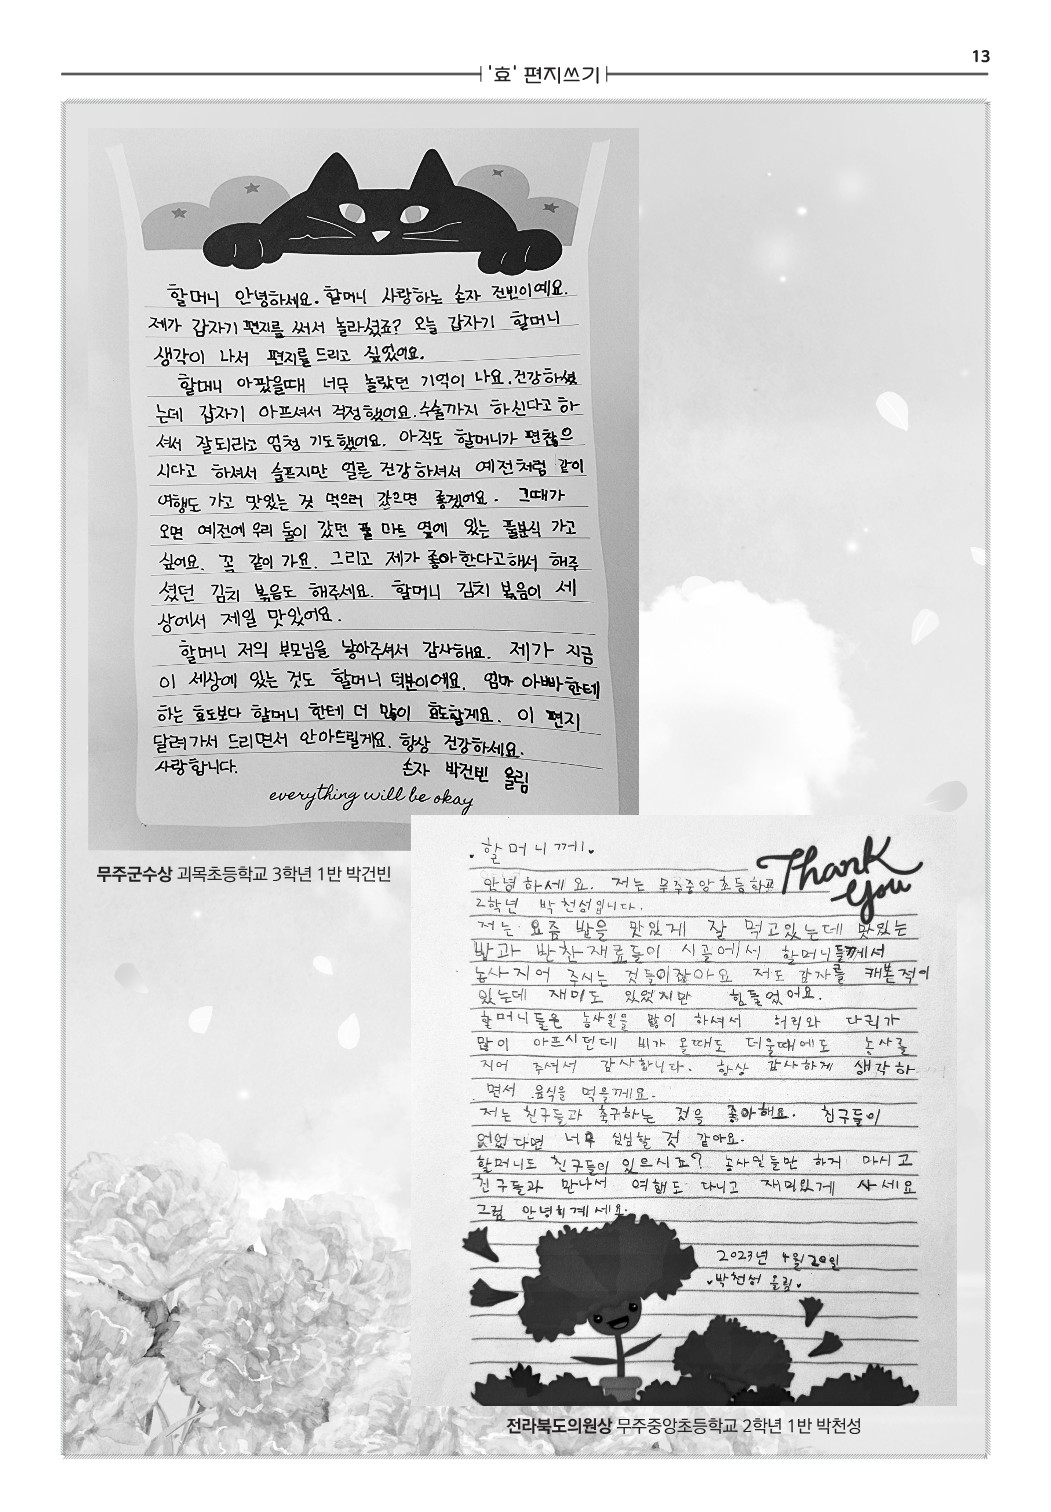 13
'효' 편지쓰기
할머니 안녕하세요. 할머니 사랑하는 손자 건빈이예요.
제가 갑자기 편지를 써서 놀라셨죠? 오늘 갑자기 할머니
생각이 나서 편지를 드리고 싶었어요.
할머니 아팠을때 너무 놀랐던 기억이 나요. 건강하셨
는데 갑자기 아프셔서 걱정했어요. 수술까지 하신다고 하
셔서 잘되라고 엄청 기도했어요. 아직도 할머니가 편찮으
시다고 하셔서 슬프지만 얼른 건강하셔서 예전처럼 같이
여행도 가고 맛있는 것 먹으러 갔으면 좋겠어요. 그때가
오면 예전에 우리 둘이 갔던 풀 마트 옆에 있는 풀분식 가고
싶어요. 꼭 같이 가요. 그리고 제가 좋아한다고해서 해주
셨던 김치 볶음도 해주세요. 할머니 김치 볶음이 세
상에서 제일 맛있어요.
할머니 저의 부모님을 낳아주셔서 감사해요. 제가 지금
이 세상에 있는 것도 할머니 덕분이에요. 엄마 아빠한테
하는 효도보다 할머니 한테 더 많이 효도할게요. 이 편지
달려가서 드리면서 안아드릴게요. 항상 건강하세요.
사랑합니다.
손자 박건빈 올림
everything will be okay
무주군수상 괴목초등학교 3학년 1반 박건빈
할머니께
Thank
You
안녕하세요. 저는 무주중앙초등학교
2학년 박천성입니다.
저는 요즘 밥을 맛있게 잘 먹고있는데 맛있는
밥과 반찬재료들이 시골에서 할머니들께서
농사지어 주시는 것들이잖아요 저도 감자를 캐본적이
있는데 재미도 있었지만 힘들었어요.
할머니들은 농사일을 많이 하셔서 허리와 다리가
많이 아프시던데 비가 올때도 더울때에도 농사를
지어 주셔서 감사합니다. 항상 감사하게 생각하
면서 음식을 먹을께요.
저는 친구들과 축구하는 것을 좋아해요. 친구들이
없었다면 너무 심심할 것 같아요.
할머니도 친구들이 있으시죠? 농사일들만 하게 마시고
친구들과 만나서 여행도 다니고 재미있게 사세요
그럼 안녕히계세요.
2023년 4월 20일
박천성 올림
전라북도의원상 무주중앙초등학교 2학년 1반 박천성